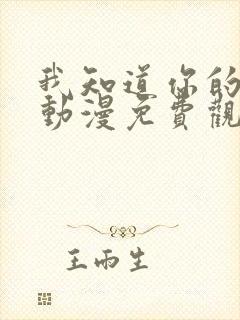 我知道你的
動漫免費觀
王雨生